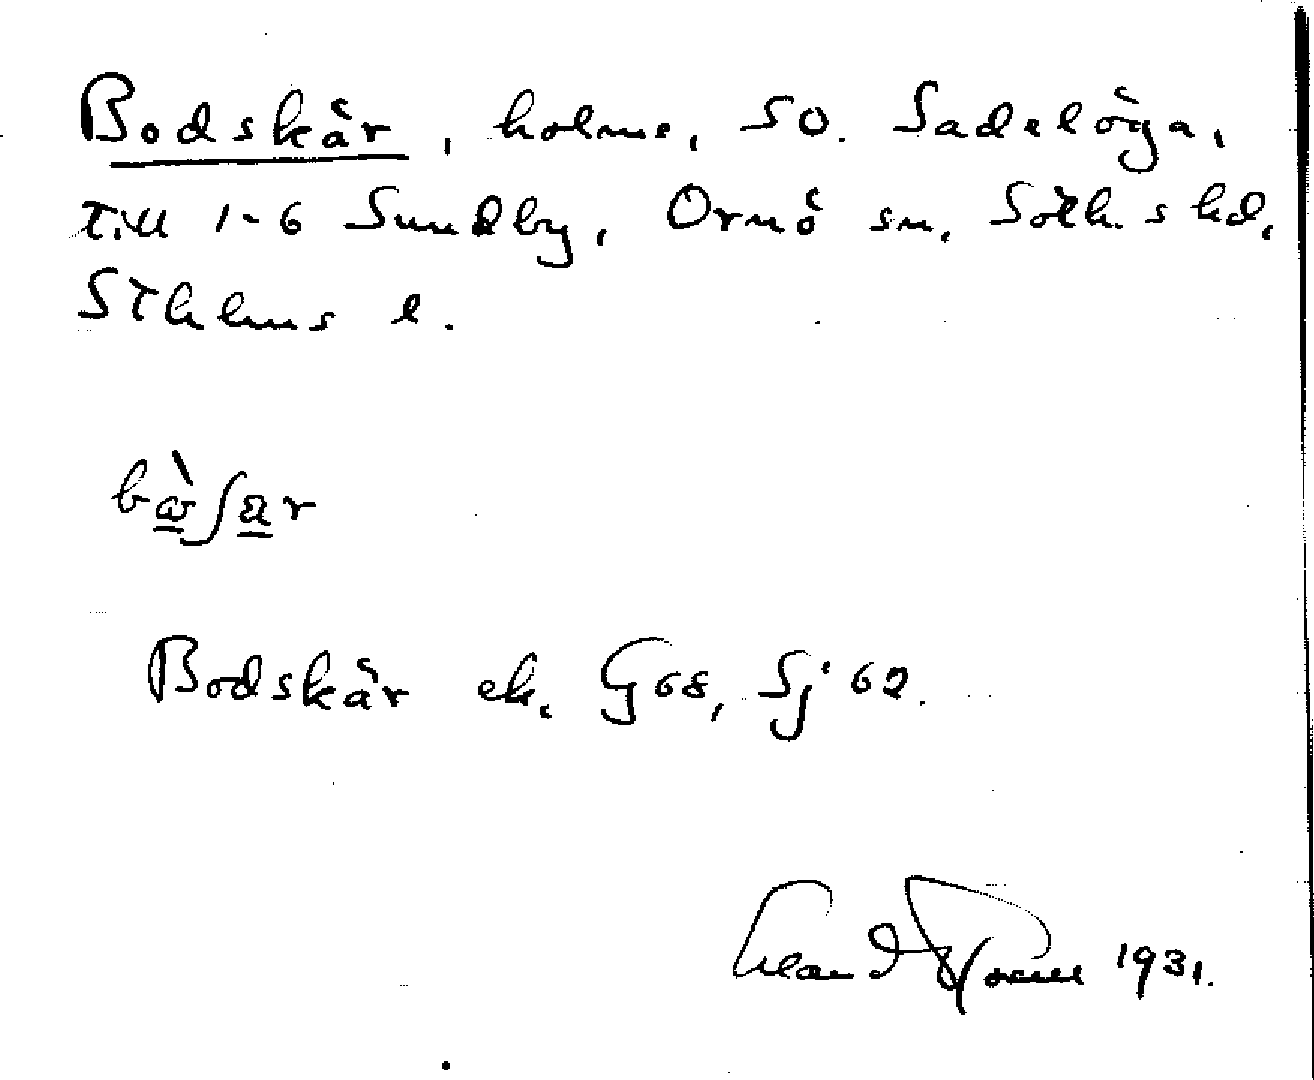 Bodskär, holme, SO. Sadelöga,
till 1-6 Sundby, Ornö sn, Soth. s hd,
Sthlms l.
Bodskär ek. G68, Sj 62.
1931.